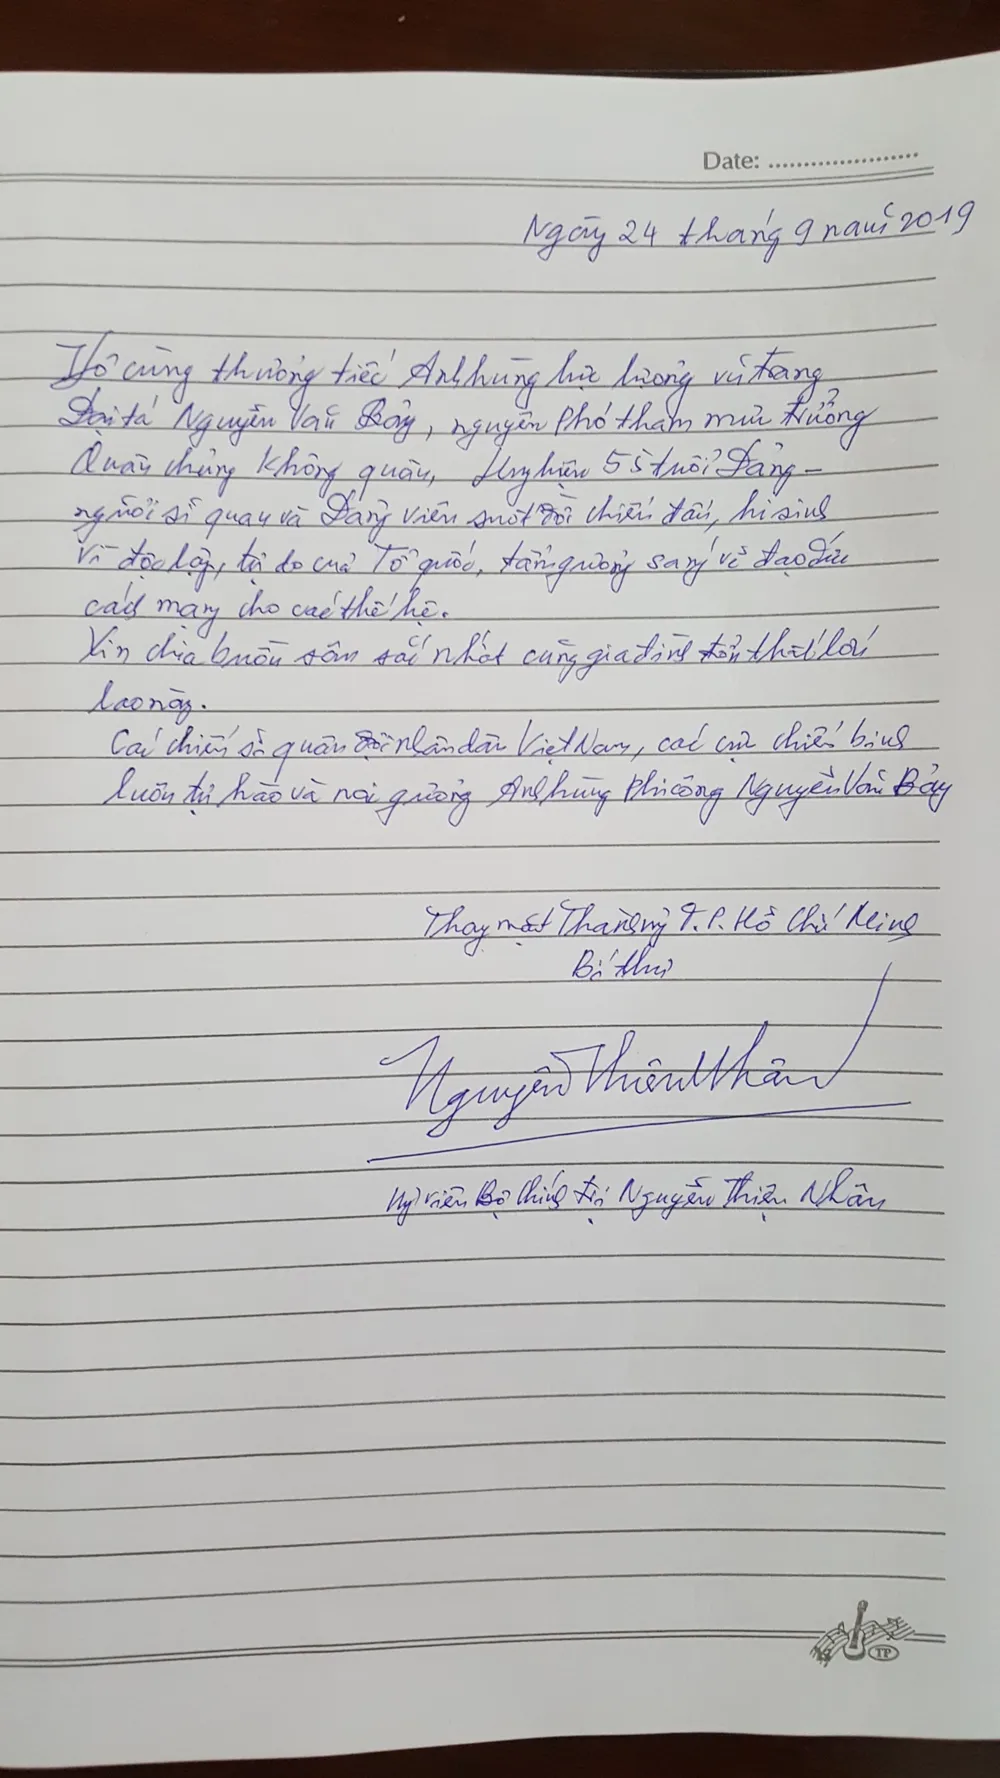 Date: .....................
Ngày 24 tháng 9 năm 2019
Vô cùng thương tiếc Anh hùng lực lượng vũ trang
Đại tá Nguyễn Văn Bảy, nguyên Phó tham mưu trưởng
Quân chủng Không quân, Huy hiệu 55 tuổi Đảng -
người sĩ quan và Đảng viên suốt đời chiến đấu, hi sinh
vì độc lập, tự do của Tổ quốc, tấm gương sáng về đạo đức
cách mạng cho các thế hệ.
Xin chia buồn sâu sắc nhất cùng gia đình tổn thất lớn
lao này.
Các chiến sĩ quân đội nhân dân Việt Nam, các cựu chiến binh
luôn tự hào và noi gương Anh hùng Phi công Nguyễn Văn Bảy
Thay mặt Thành ủy T.P. Hồ Chí Minh
Bí thư
Nguyễn Thiện Nhân
Uỷ viên Bộ Chính trị Nguyễn Thiện Nhân
TP